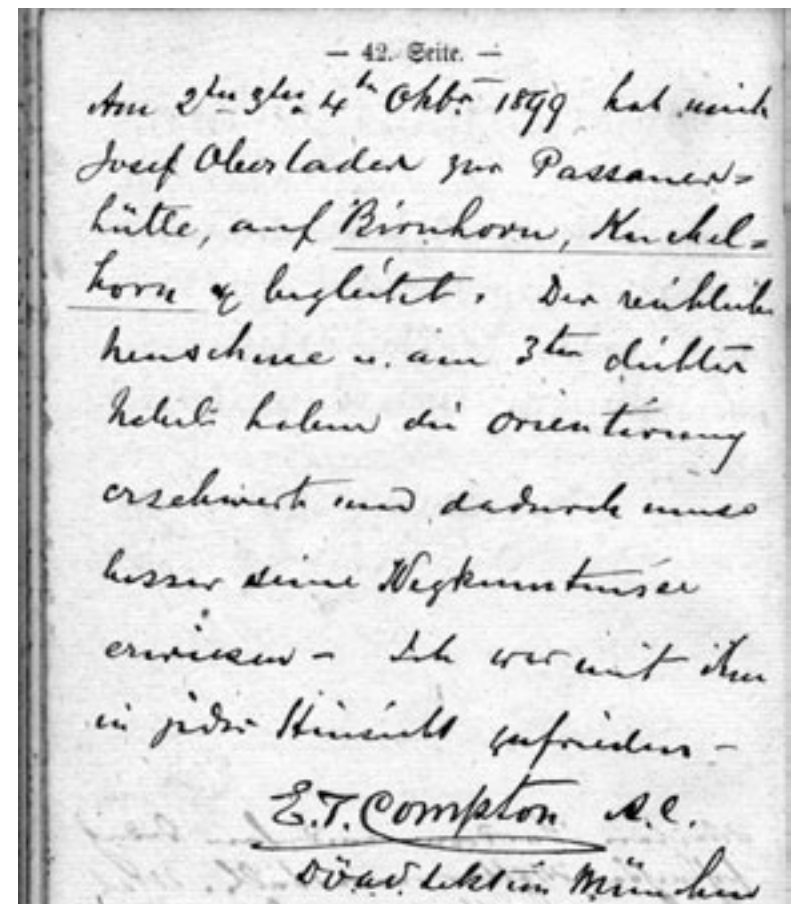 — 42. Seite. —
Am 2ten 3ten 4ten Oktbr. 1899 hat mich
Josef Oberlader zur Passauer=
hütte, auf Birnhorn, Kuchel=
horn begleitet. Der reichliche
Neuschnee u. am 3ten dichter
Nebel haben die Orientirung
erschwert und dadurch umso
besser seine Wegkenntnisse
erwiesen – Ich war mit ihm
in jeder Hinsicht zufrieden –
E.T. Compton A.C.
DÖAV. Sektion München